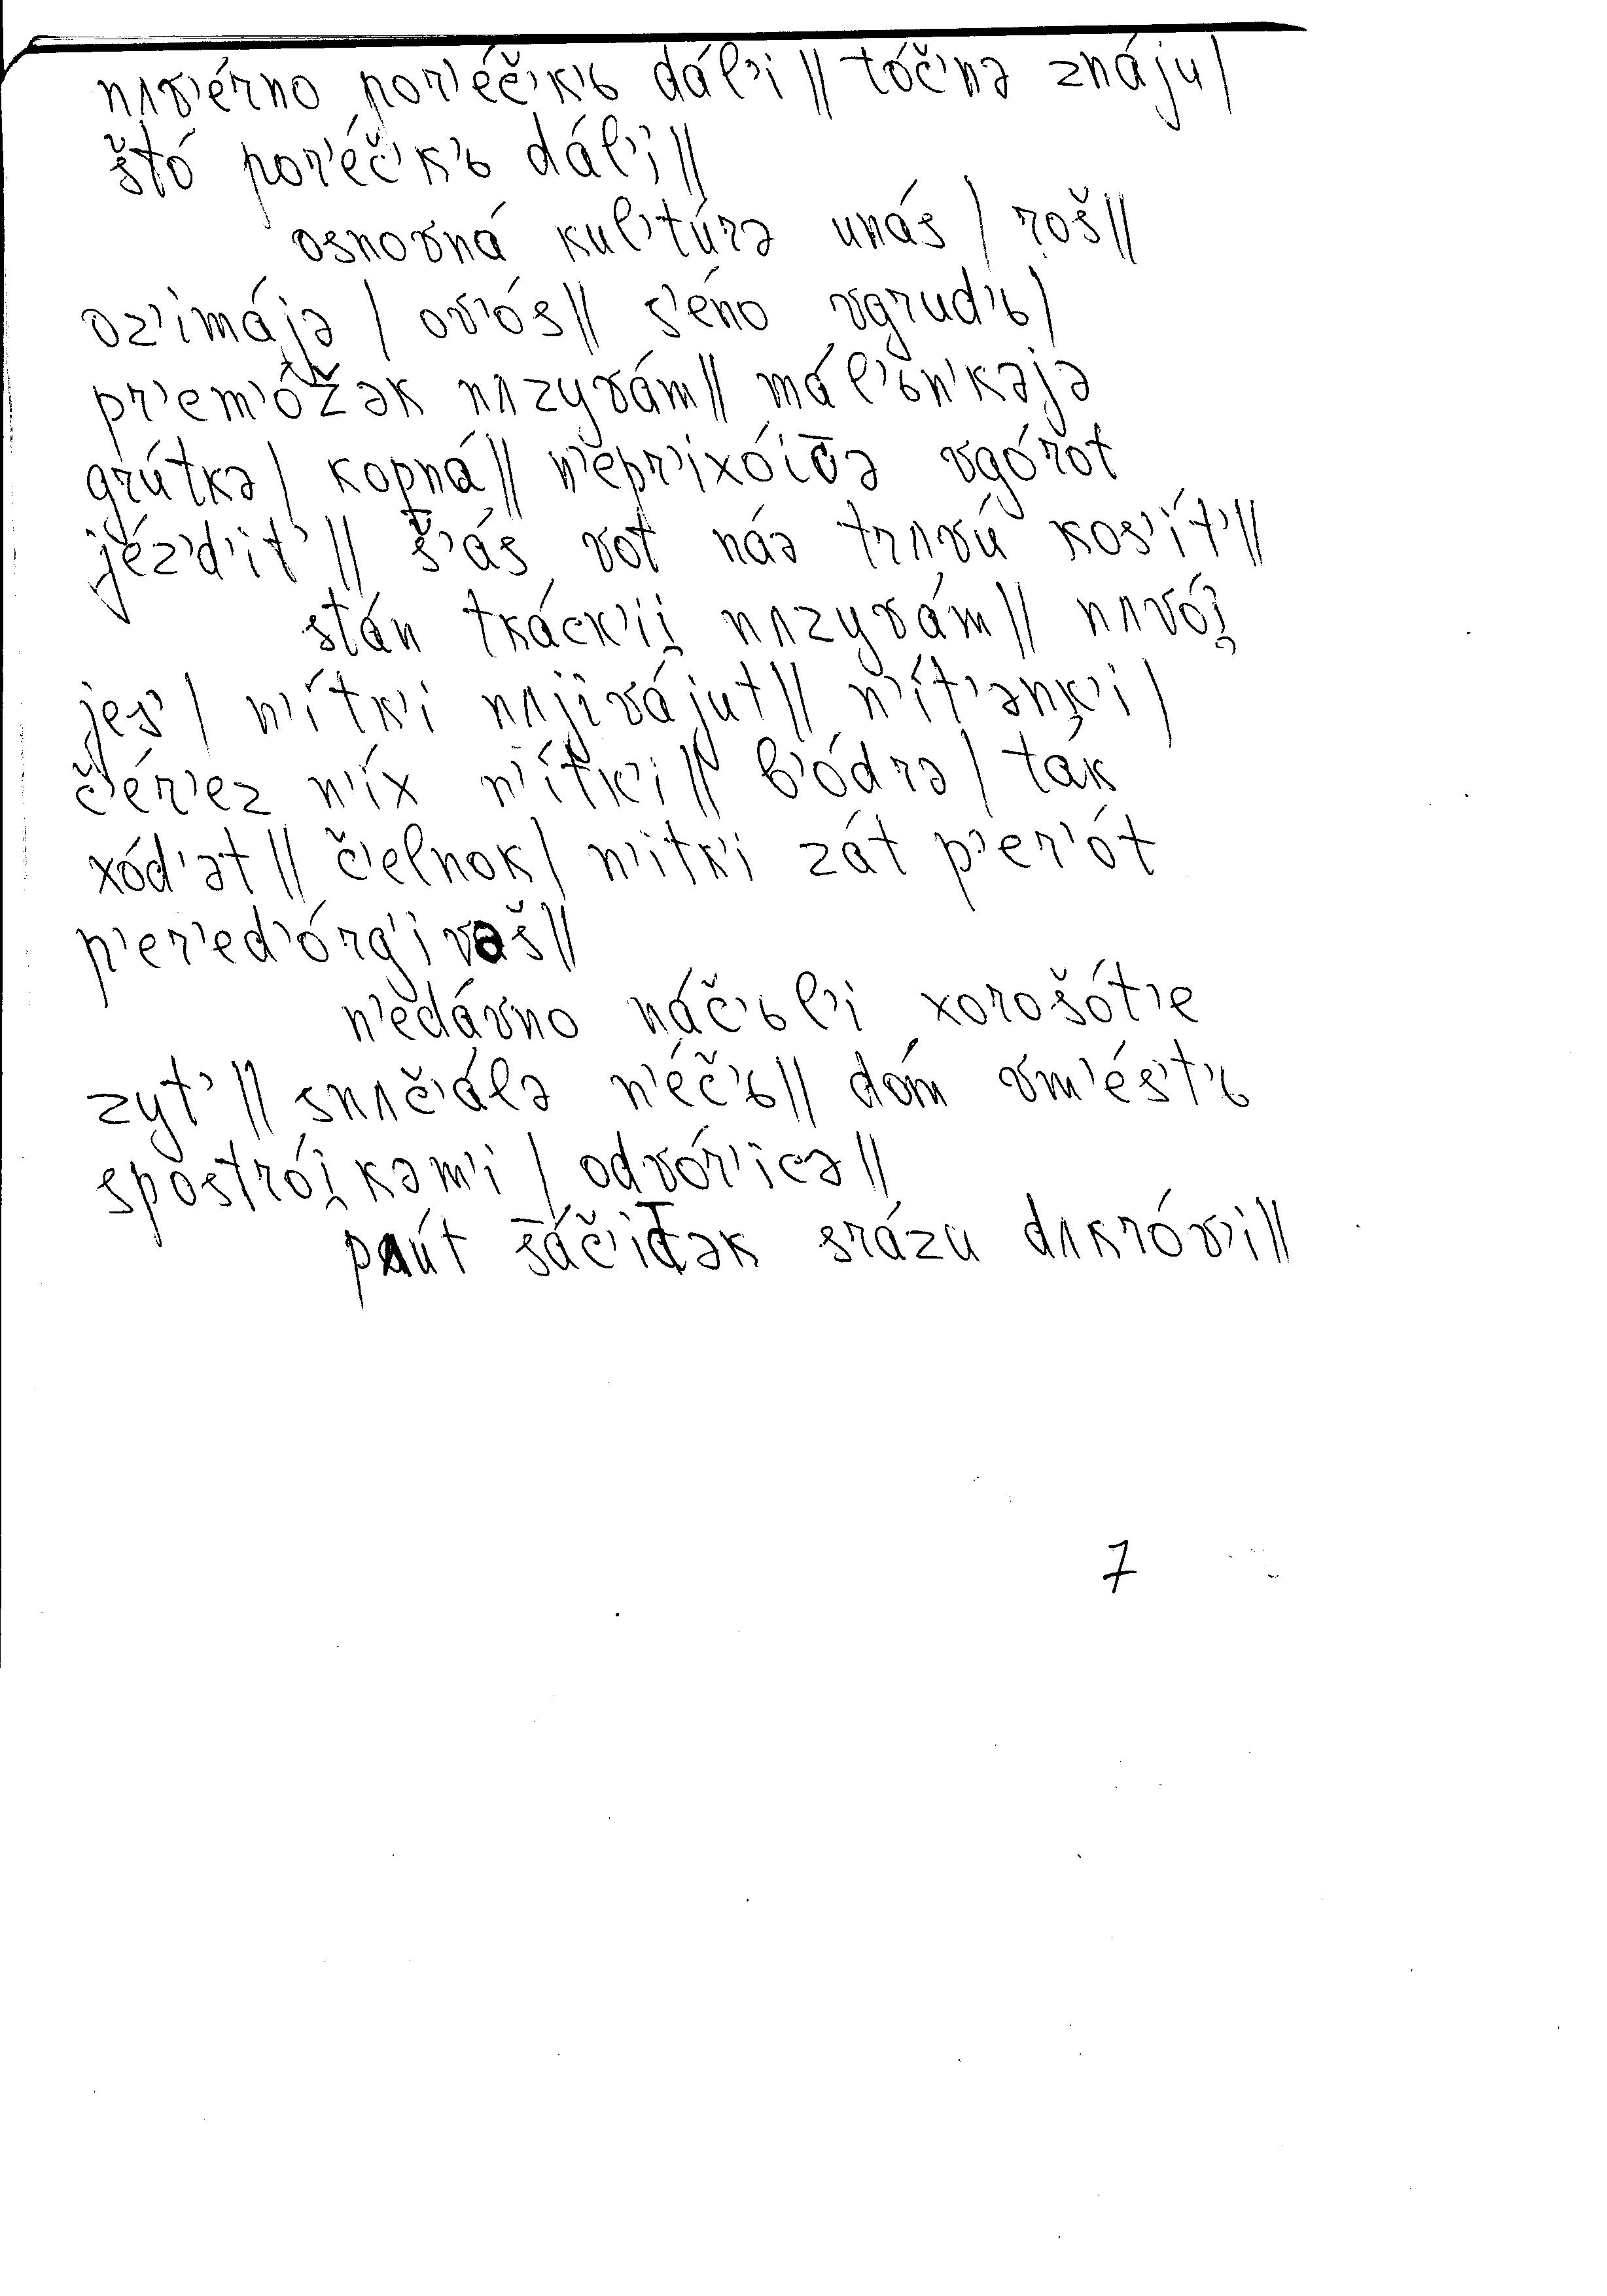 nʌv'érno por'éč'k'ь dál'i || tóč'nə znáju |
što por'éč'k'ь dál'i ||
osnovná kul'túrə unás | roš ||
oz'imájə | ov'ós || s'éno vgrud'ь |
pr'em'óžək nʌzyvám || mál'ьn'kəjə
grútkə | kopná || n'epr'ixói̯c̄ə vgórot
jéz'd'it' || š̄'ás vot náə trʌvú kos'ít' ||
stán tkáck'ii̯ nʌzyvám || nʌvói̯
jes' | n'ítk'i nʌjivájut || n'ít'ənk'i |
č'ér'ez n'íx n'ítk'i || b'ódrə | ták
xód'ət || č'elnok | n'itk'i zát p'er'ót
p'er'ed'órg'ivəš ||
n'edávno náč'ьl'i xorošót'e
zyt' || snʌč'álə p'éč'ь || dóm vm'és't'ь
spostrói̯kəm'i | odvór'icə ||
pʌút s̄áč'it̄ək srázu dʌkróv'i ||
7